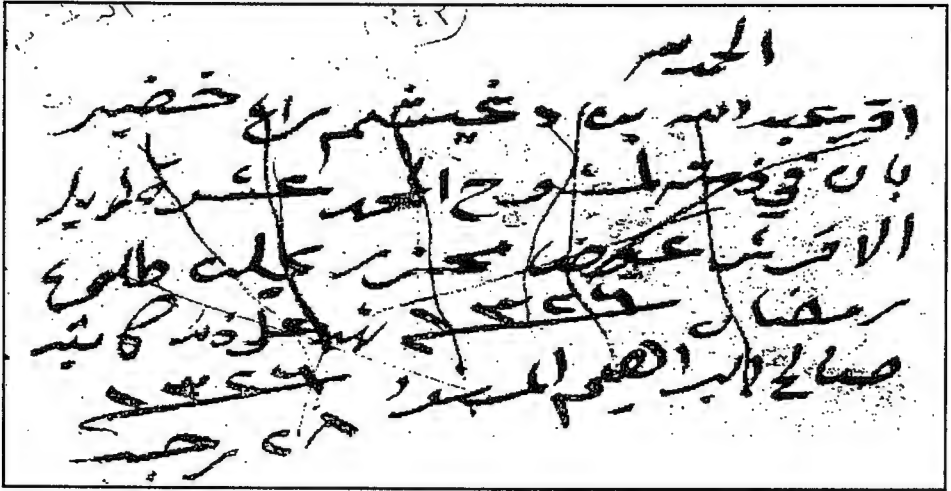 الحمد لله
اقر عبد الله بن دغيشم راع خضير
بان في ذمته لمشوح احد عشر ريال
الا قرش عوض يحلن طلوع
رمضان ١٣٢٦ شهد على ذلك كاتبه
صالح البراهيم
١٣٢٦
٢٦ رجب